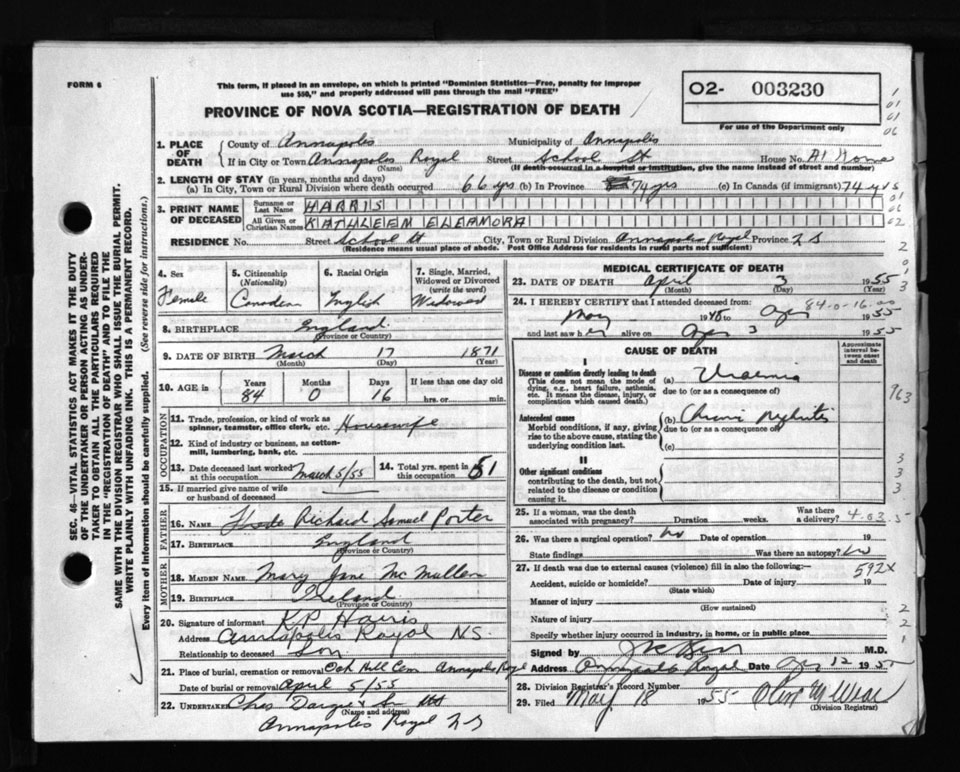 FORM 6
This form, if placed in an envelope, on which is printed "Dominion Statistics—Free, penalty for improper
use $50," and properly addressed will pass through the mail "FREE"
O2- 003230
For use of the Department only
PROVINCE OF NOVA SCOTIA—REGISTRATION OF DEATH
1. PLACE OF DEATH
County of Annapolis Municipality of Annapolis
If in City or Town Annapolis Royal Street School St House No. At Home
(Name) (If death occurred in a hospital or institution, give the name instead of street and number)
2. LENGTH OF STAY (in years, months and days)
(a) In City, Town or Rural Division where death occurred 66 yrs (b) In Province 74 yrs (c) In Canada (if immigrant) 74 yrs
3. PRINT NAME OF DECEASED
Surname or Last Name HARRIS
All Given or Christian Names KATHLEEN ELEAMORA
RESIDENCE No. Street School St City, Town or Rural Division Annapolis Royal Province NS
(Residence means usual place of abode. Post Office Address for residents in rural parts not sufficient)
4. Sex Female
5. Citizenship (Nationality) Canadian
6. Racial Origin English
7. Single, Married, Widowed or Divorced (write the word) Widowed
8. BIRTHPLACE England
(Province or Country)
9. DATE OF BIRTH March 17 1871
(Month) (Day) (Year)
10. AGE in Years 84 Months 0 Days 16 If less than one day old hrs. or min.
OCCUPATION
11. Trade, profession, or kind of work as spinner, teamster, office clerk, etc. Housewife
12. Kind of industry or business, as cotton-mill, lumbering, bank, etc.
13. Date deceased last worked at this occupation March 5/55
14. Total yrs. spent in this occupation 51
15. If married give name of wife or husband of deceased
FATHER
16. NAME Richard Samuel Porter
17. BIRTHPLACE England
(Province or Country)
MOTHER
18. MAIDEN NAME Mary Jane McMullen
19. BIRTHPLACE Ireland
(Province or Country)
20. Signature of informant K.P. Harris
Address Annapolis Royal NS.
Relationship to deceased Son
21. Place of burial, cremation or removal Oak Hill Cem Annapolis Royal
Date of burial or removal April 5/55
22. UNDERTAKER Chas Dargie & Son
(Name and address)
Annapolis Royal NS
MEDICAL CERTIFICATE OF DEATH
23. DATE OF DEATH April 3 1955
(Month) (Day) (Year)
84-0-16-00
24. I HEREBY CERTIFY that I attended deceased from:
May 1948 to Apr 1955
and last saw her alive on Apr 3 1955
CAUSE OF DEATH
Approximate interval between onset and death
I
Disease or condition directly leading to death
(This does not mean the mode of dying, e.g., heart failure, asthenia, etc. It means the disease, injury, or complication which caused death.)
(a) Uraemia
due to (or as a consequence of)
Antecedent causes
Morbid conditions, if any, giving rise to the above cause, stating the underlying condition last.
(b) Chronic Nephritis
due to (or as a consequence of)
(c)
II
Other significant conditions
contributing to the death, but not related to the disease or condition causing it.
963
25. If a woman, was the death associated with pregnancy? Duration weeks. Was there a delivery?
26. Was there a surgical operation? No Date of operation 19
State findings Was there an autopsy? No
27. If death was due to external causes (violence) fill in also the following:—
592X
Accident, suicide or homicide? Date of injury 19
(State which)
Manner of injury
(How sustained)
Nature of injury
Specify whether injury occurred in industry, in home, or in public place
Signed by M.D.
Address Annapolis Royal Date Apr 12 1955
28. Division Registrar's Record Number
29. Filed May 18 1955
(Division Registrar)
SEC. 46—VITAL STATISTICS ACT MAKES IT THE DUTY
OF THE UNDERTAKER OR PERSON ACTING AS UNDER-
TAKER TO OBTAIN ALL THE PARTICULARS REQUIRED
IN THE "REGISTRATION OF DEATH" AND TO FILE THE
SAME WITH THE DIVISION REGISTRAR WHO SHALL ISSUE THE BURIAL PERMIT.
WRITE PLAINLY WITH UNFADING INK. THIS IS A PERMANENT RECORD.
Every item of information should be carefully supplied. (See reverse side for instructions.)